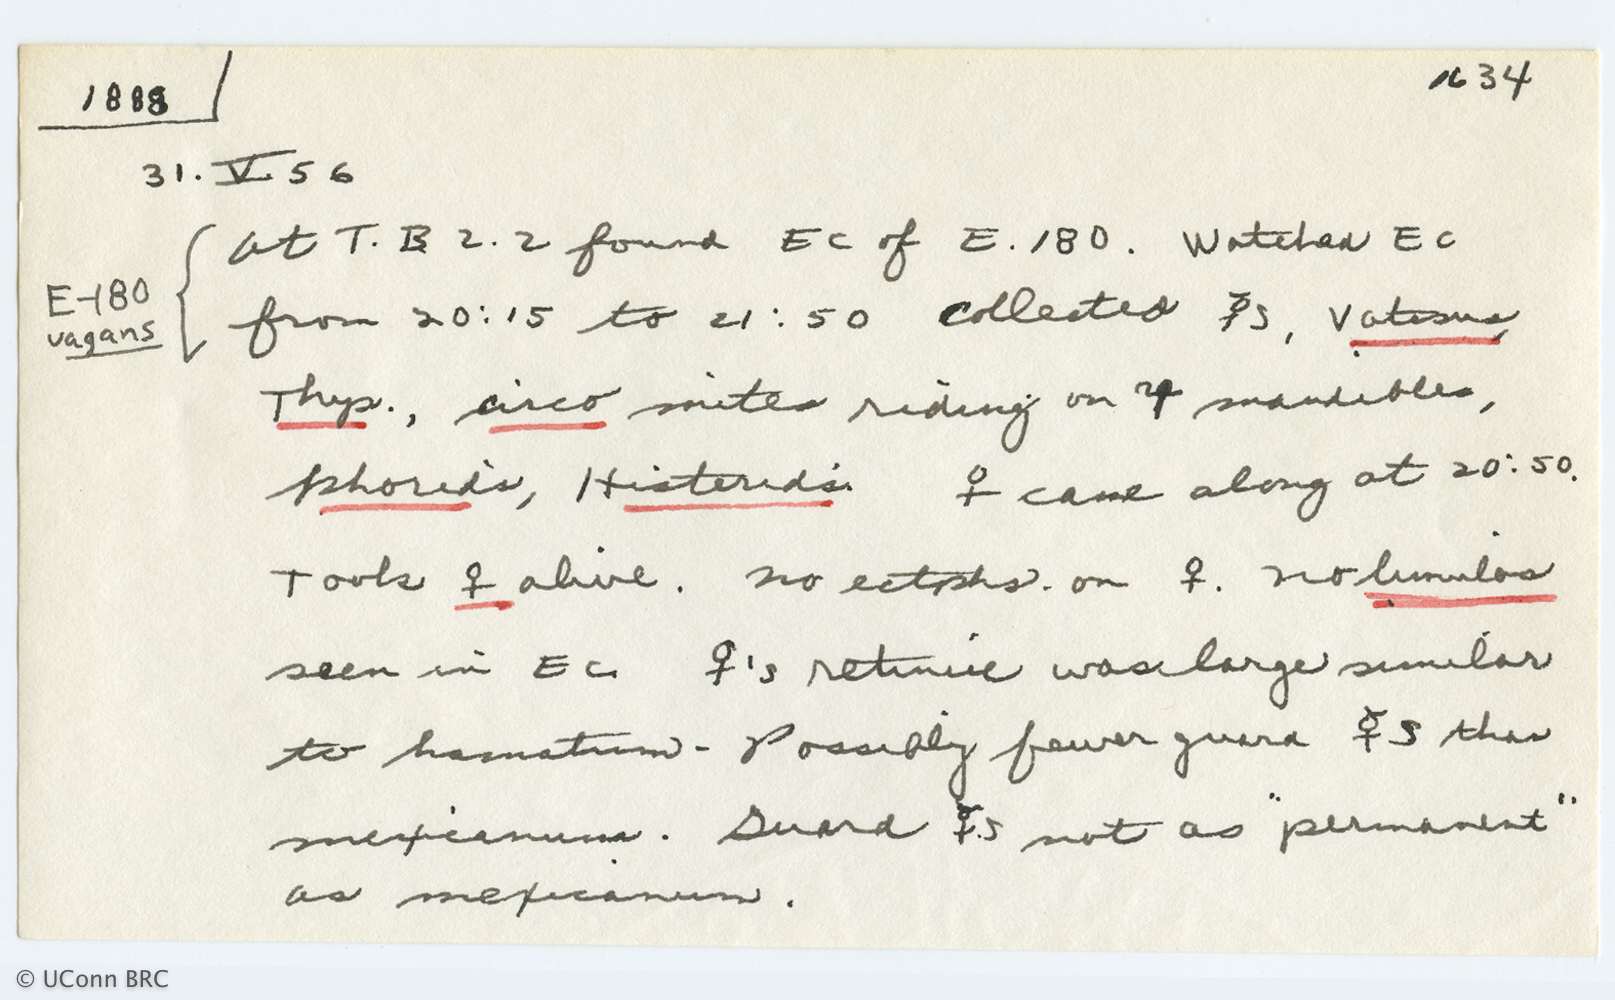 1888
1634
31.V.56
E-180
vagans
at T.B 2.2 found Ec of E.180. Watched Ec
from 20:15 to 21:50 collected ☿s, Vatesus,
Thyp., circo mites riding on ♃ mandibles,
Phorids, Histerids. ♀ came along at 20:50.
Took ♀ alive. No ectops. on ♀. No limulos
seen in Ec. ♀'s retinue was large similar
to hamatum - Possibly fewer guard ☿s than
mexicanum. Guard ☿s not as "permanent"
as mexicanum.
© UConn BRC